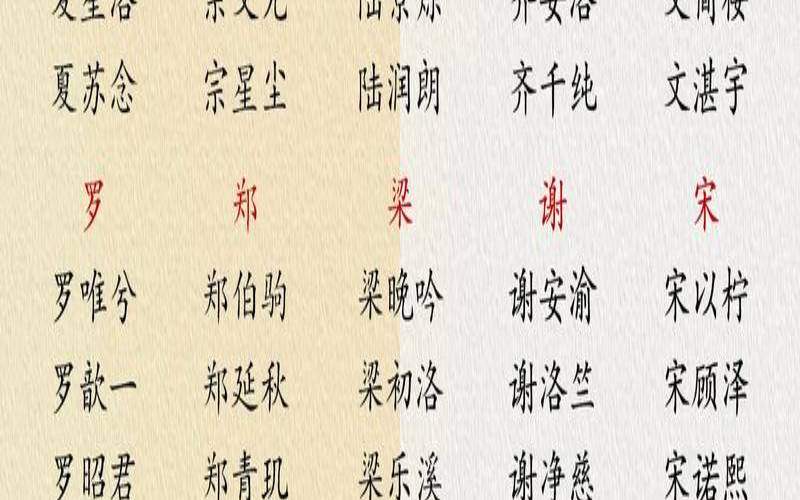 夏星洛 宗文九 陆景烁 齐安洛 文简桉
夏苏念 宗星尘 陆润朗 齐千纯 文湛宇
罗 郑 梁 谢 宋
罗唯兮 郑伯驹 梁晚吟 谢安渝 宋以柠
罗歆一 郑延秋 梁初洛 谢洛竺 宋顾泽
罗昭君 郑青玑 梁乐溪 谢净慈 宋诺熙